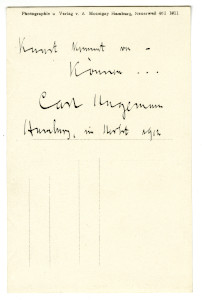 Photographie u. Verlag v. A. Mocsigay Hamburg,
Kunst kommt von -
Können ...
Carl Hagemann
Hamburg, im Herbst 1912